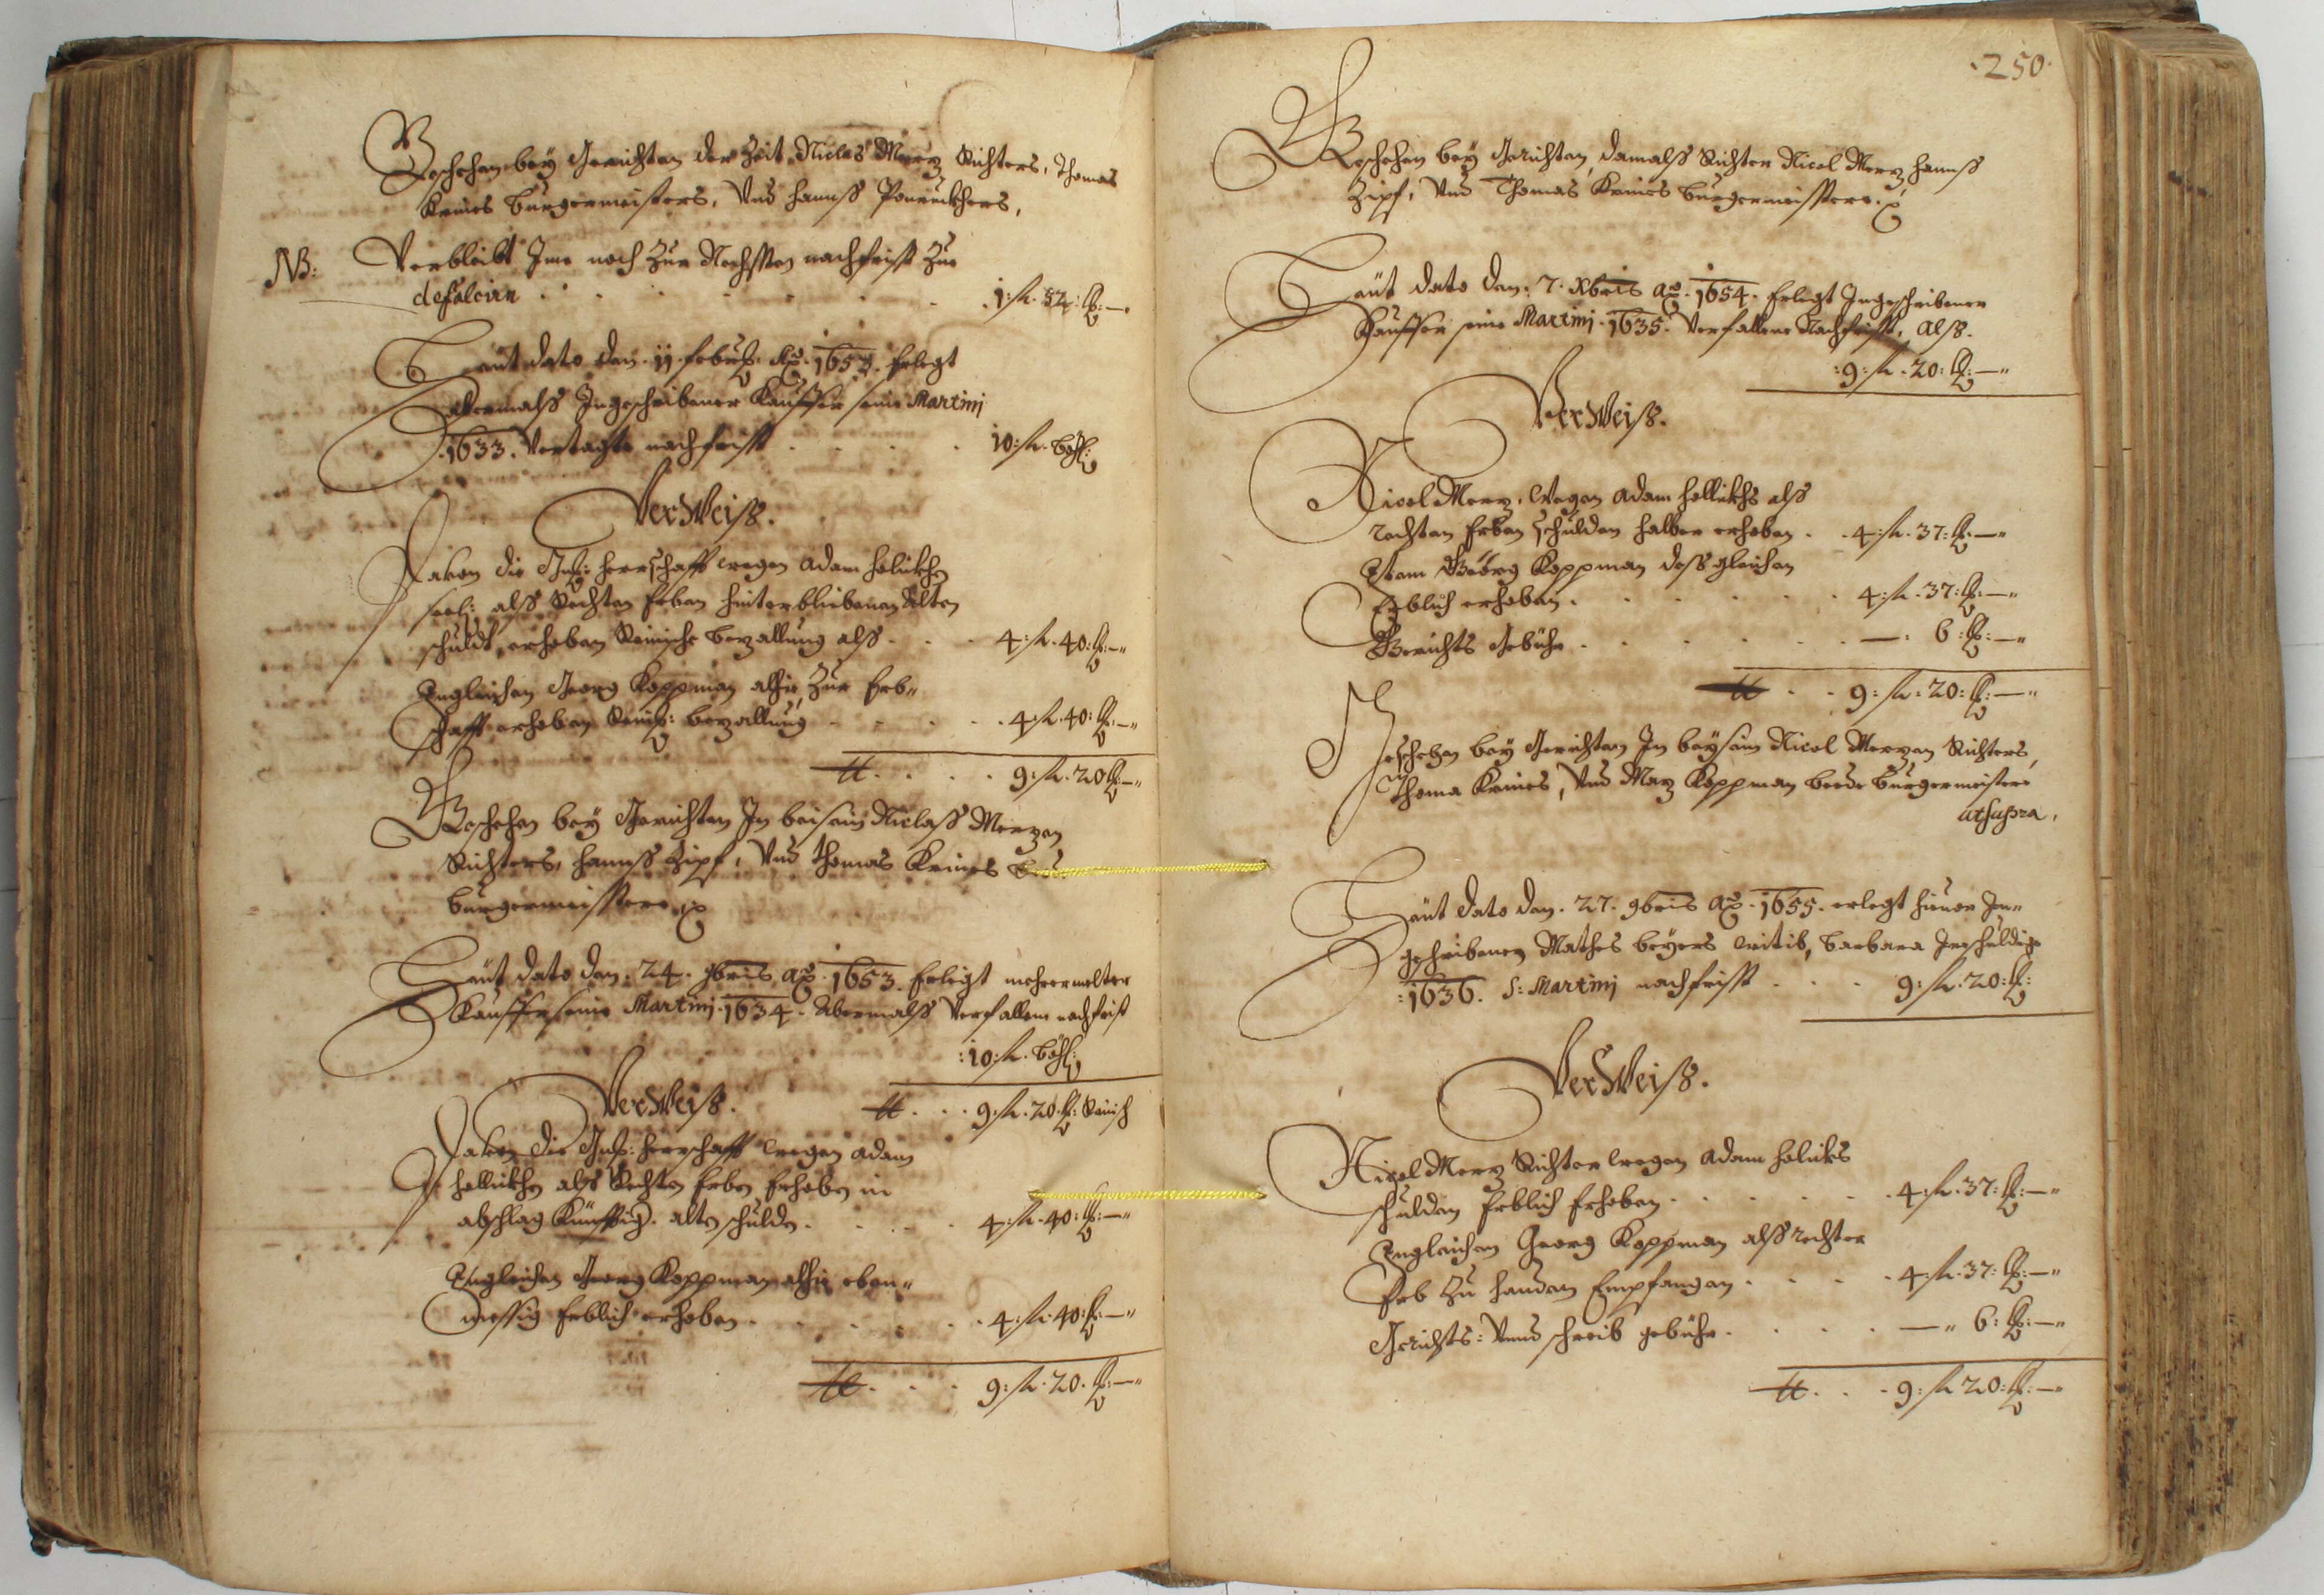 Geschehen bey Gerichten der Zeit Niclas Merz Richters, Thomas
Krines Burgermeisters, Vnd Hannß
NB: Verbleibt Ime noch Zur Nechsten nachfrist Zue
defalcirn . . . 1: fl. 52: kr: —
Heut dato den 11. Ao. 165 Erlegt
abermalß Ingeschribener Kauffer seine Martinj
1633. Vertagte nachfrist . . . 10: fl. Böhf:
VerWeiß.
Haben die Gnd: Herrschafft wegen Adam
seel: alß Rechten Erben hinterblibenen Alten
schuldt erhoben Reinische bezallung alß . . . 4: fl. 40: kr: —
Ingleichen Georg Koppman alhie Zur Erb-
schafft erhoben Reinis: bezallung . . . 4: fl. 40: kr: —
9: fl. 20 kr: —
Geschehen bey Gerichten In beisein Niclaß Merzen
Richters, Hannß Zipf, Vnd Thomas Krines
Burgermeistere
Heut dato den. 24. 9bris Ao. 1653. Erlegt mehrermelter
Kauffer seine Martinj. 1634. Abermalß Verfallene nachfrist
: 10: fl. Böhf:
VerWeiß. . . . 9: fl. 20. kr: Reinisch
Haben die Gnd: Herrschafft wegen Adam
alß Rechten Erben Erhoben in
abschlag Künfftig. alten schulden . . . 4: fl. 40: kr: —
Ingleichen Georg Koppman alhie eben-
messig Erblich erhoben . . . 4: fl. 40: kr: —
9: fl. 20. kr: —
.250.
Geschehen bey Gerichten, damalß Richter Nicol Merz, Hannß
Zipf, Vnd Thomas Krines Burgermeistere.
Heut dato den. 7. Xbris Ao. 1654. Erlegt Ingeschribener
Kauffer seine Martinj. 1635. Verfallene Nachfrist, Alß.
: 9: fl. 20: kr: —
VerWeiß.
Nicol Merz, Wegen Adam alß
rechten Erben schulden halber erhoben . . 4: fl. 37: kr: —
Item Geörg Koppman deßgleichen
Erblich erhoben . . . 4: fl. 37: kr: —
Gerichts Gebühr . . . —: 6: kr: —
9: fl. 20: kr: —
Geschehen bey Gerichten In beysein Nicol Merzen Richters,
Thoma Krines, Vnd Marz Koppman beede Burgermeistere
ut supra.
Heut dato den. 27. 9bris Ao. 1655. erlegt hierer Inn-
geschribenen Mathes Beyers witib, Barbara Ire schuldige
: 1636. S: Martinj nachfrist . . . 9: fl. 20: kr:
VerWeiß.
Nicol Merz Richter wegen Adam
schulden Erblich Erhoben . . . 4: fl. 37: kr: —
Ingleichen Georg Koppman alß rechter
Erb Zu handen Empfangen . . . 4: fl. 37: kr: —
Gerichts: Vnnd schreib gebühr . . . — 6: kr: —
9: fl 20: kr: —